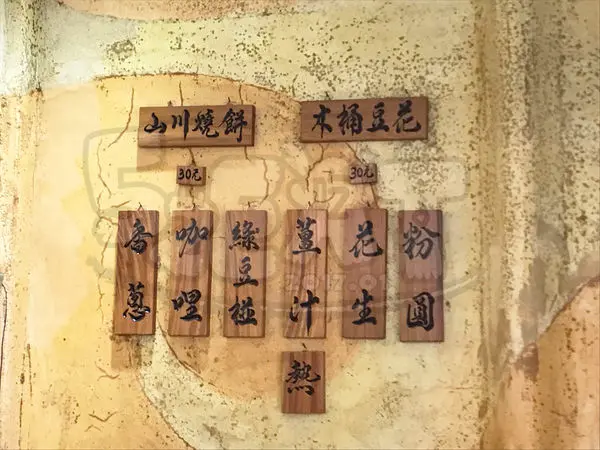 山川燒餅
30元
香蔥
咖哩
綠豆椪
木桶豆花
30元
薑汁
熱
花生
粉圓